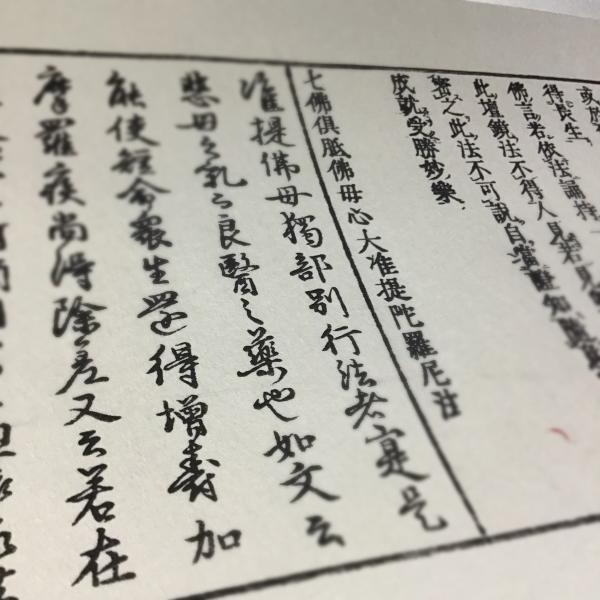 或於
得長生
佛言若依法誦持
此壇鏡法不得人見若見
密之此法不可說自當證知隨意
成就受勝妙樂
七佛俱胝佛母心大准提陀羅尼法
准提佛母獨部別行法者寔是
悲母之乳又良醫之藥也如文云
能使短命衆生還得增壽加
摩羅疾尚得除差又云若在